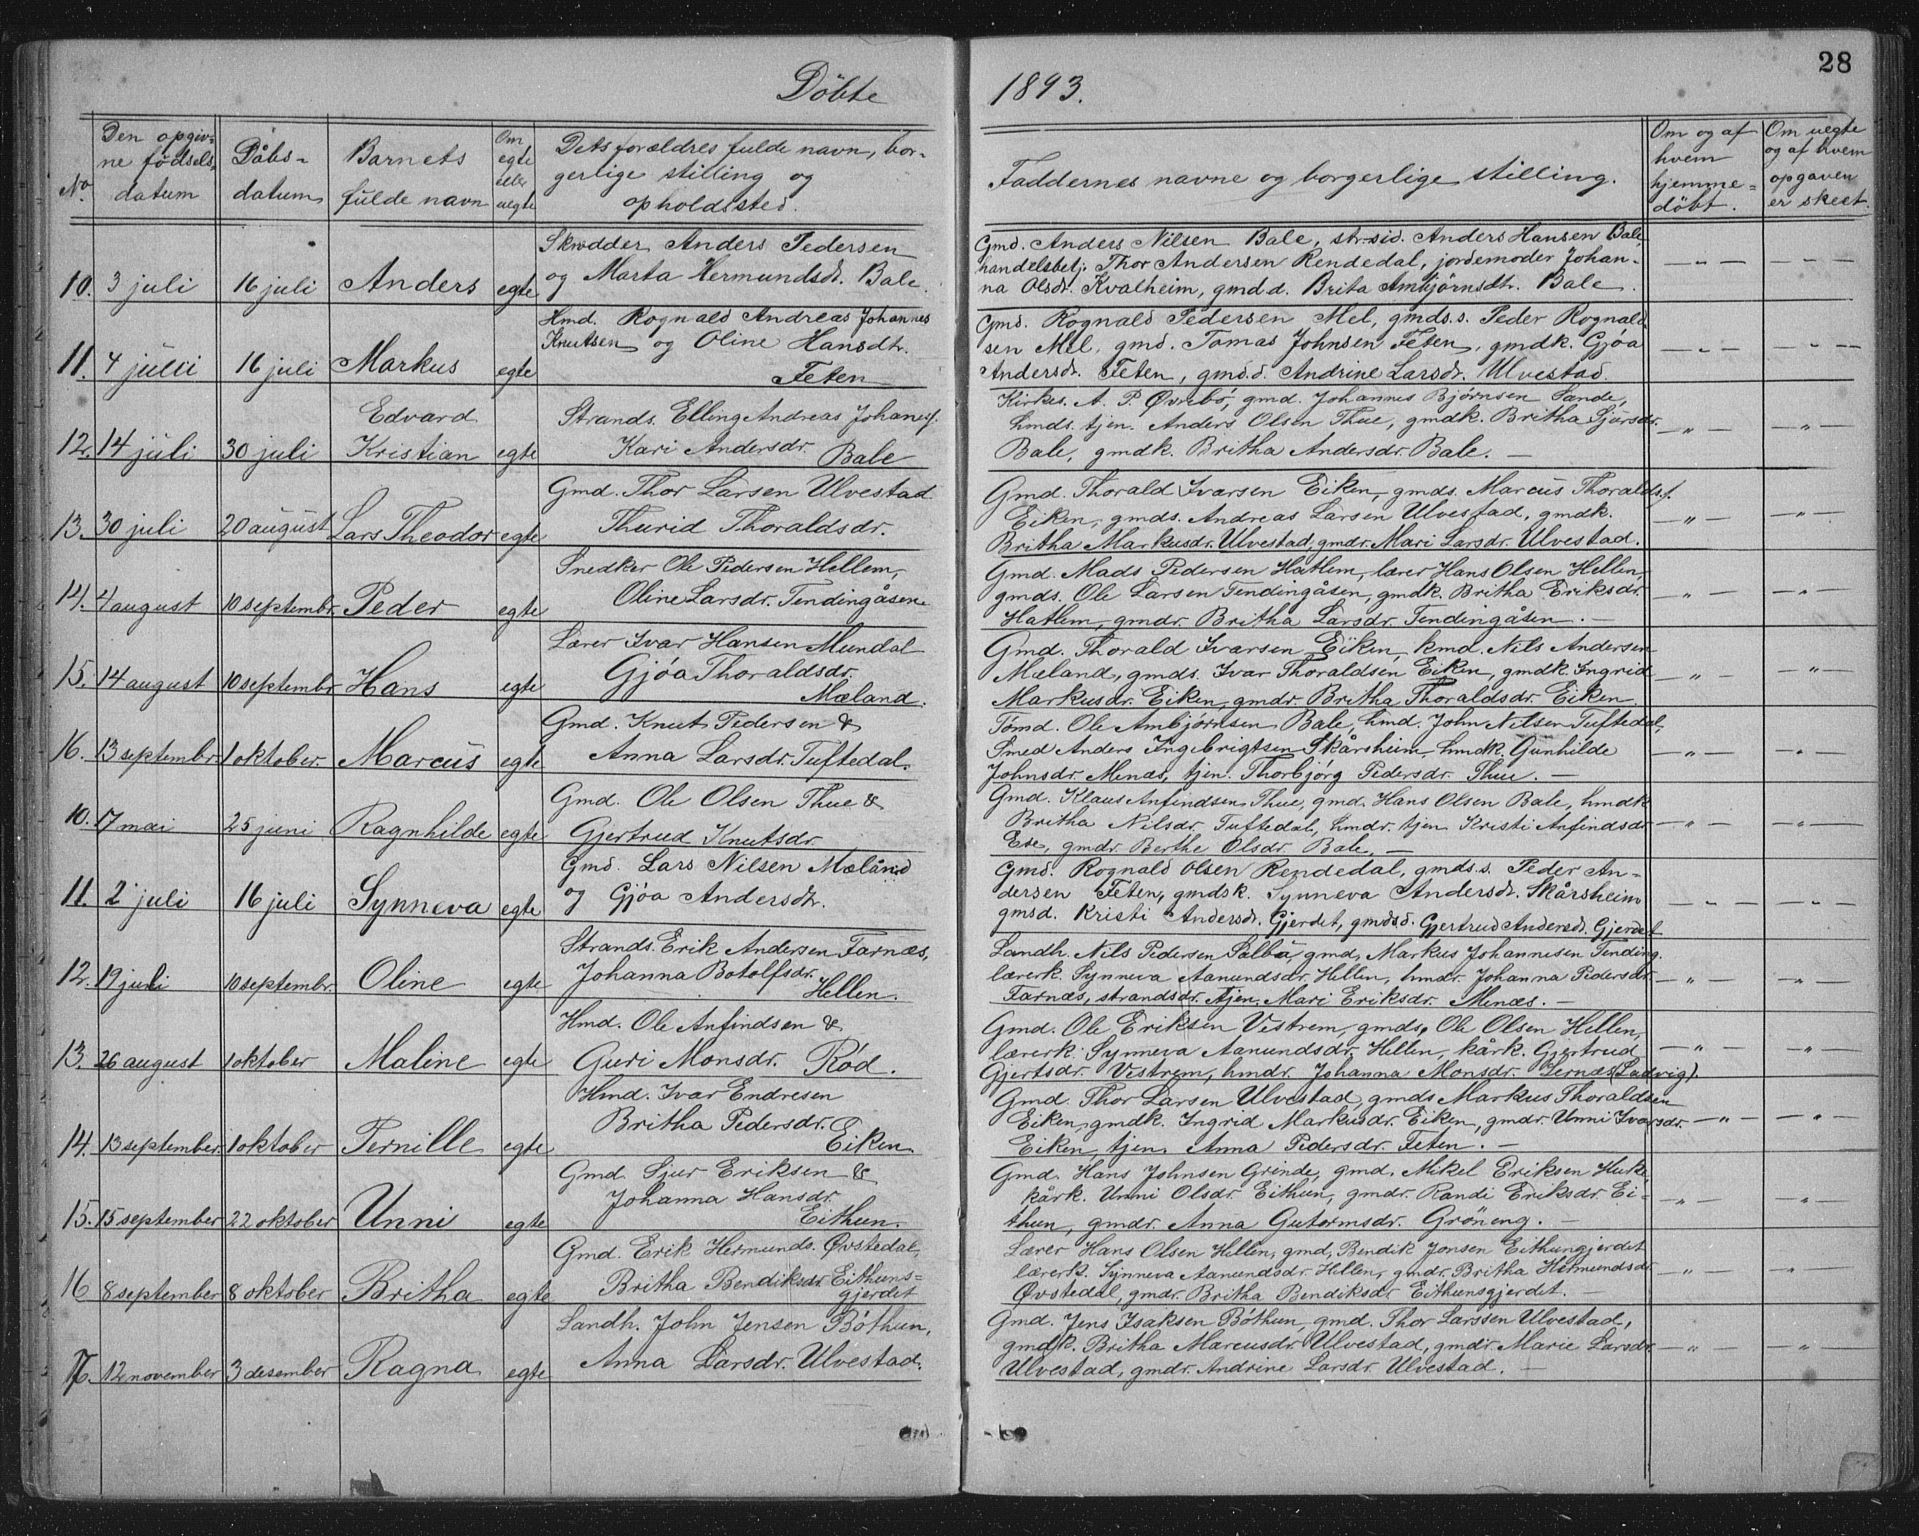 28
Döbte 1893.
No.
Den opgiv-
ne fødsels-
datum
Dåbs-
datum
Barnets
fulde navn
Om
egte
eller
uegte
Dets forældres fulde navn, bor-
gerlige stilling og
opholdssted.
Faddernes navne og borgerlige stilling.
Om og af
hvem
hjemme-
döbt.
Om uegte
og af hvem
opgaven
er skeet.
10. 3 juli 16 juli Anders egte
Skrædder Anders Pedersen
og Marta Hermundsdr. Bale.
Gmd. Anders Nilsen Bale, str.sid. Anders Hansen Bale
handelsbetj. Thor Andersen Rendedal, jordemoder Johan-
na Olsdr. Kvalheim, gmd.d. Brita Ambjörnsdtr. Bale.
— „ — — „ —
11. 4 juli 16 juli Markus egte
Hmd. Rognald Andreas Johannes
Knutsen og Oline Hansdtr.
Feten
Gmd. Rognald Pedersen Mel, gmds.s. Peder Rognald-
sen Mel, gmd. Tomas Johnsen Feten, gmdk. Gjøa
Andersdr. Feten, gmd.d. Andrine Larsdr. Ulvestad.
— „ — — „ —
12. 14 juli 30 juli Edvard
Kristian egte
Strands. Elling Andreas Johanesf.
Kari Andersdr. Bale
Kirkes. A. P. Øvrebö, gmd. Johannes Bjørnsen Sande,
hmds. tjen. Anders Olsen Thue, gmdk. Britha Sjursdr.
Bale, gmdk. Britha Andersdr. Bale. —
— „ — — „ —
13. 30 juli 20 august Lars Theodor egte
Gmd. Thor Larsen Ulvestad
Thurid Thoraldsdr.
Gmd. Thorald Ivarsen Eiken, gmds. Marcus Thoraldsf.
Eiken, gmds. Andreas Larsen Ulvestad, gmdk.
Britha Markusdr. Ulvestad, gmdr. Mari Larsdr. Ulvestad.
— „ — — „ —
14. 4 august 10 septembr. Peder egte
Snedker Ole Pedersen Hellem,
Oline Larsdr. Tendingåsen
Gmd. Mads Pedersen Hatlem, lærer Hans Olsen Hellen,
gmds. Ole Larsen Tendingåsen, gmdk. Britha Eriksdr.
Hatlem, gmdr. Britha Larsdr. Tendingåsen. —
— „ — — „ —
15. 14 august 10 septembr. Hans egte
Lærer Ivar Hansen Mundal
Gjøa Thoraldsdr.
Mæland.
Gmd. Thorald Ivarsen Eiken, kmd. Nils Andersen
Mæland, gmds. Ivar Thoraldsen Eiken, gmdk. Ingrid
Markusdr. Eiken, gmdr. Britha Thoraldsdr. Eiken.
— „ — „ —
16. 13 septembr. 1 oktober. Marcus egte
Gmd. Knut Pedersen &
Anna Larsdr. Tuftedal.
Tømd. Ole Ambjörnsen Bale, hmd. John Nilsen Tuftedal,
Smed Anders Ingebrigtsen Skårsheim, hmdk. Gunhilde
Johnsdr. Menæs, tjen. Thorbjörg Pedersdr. Thue. —
— „ — — „ —
10. 17 mai 25 juni Ragnhilde egte
Gmd. Ole Olsen Thue &
Gjertrud Knutsdr.
Gmd. Klaus Anfindsen Thue, gmd. Hans Olsen Bale, hmdk
Britha Nilsdr. Tuftedal, hmdr. tjen. Kristi Anfindsdr
Ese, gmdr. Berthe Olsdr. Bale. —
— „ — — „ —
11. 2 juli 16 juli Synneva egte
Gmd. Lars Nilsen Mæland
og Gjøa Andersdtr.
Gmd. Rognald Olsen Rendedal, gmds.s. Peder An-
dersen Feten, gmdsk. Synneva Andersdt. Skårsheim
gmsd. Kristi Andersdr. Gjerdet, gmdsd. Gjertrud Andersd. Gjerdet
— „ — — „ —
12. 19 juli 10 septembr. Oline egte
Strands. Erik Andersen Farnæs,
Johanna Botolfsdr.
Hellen.
Landh. Nils Pedersen Sålba, gmd, Markus Johannesen Tending.
lærerk. Synneva Aamundsdr. Hellen, hmdr. Johanna Pedersdr.
Farnæs, strandsdr. tjen. Mari Eriksdr. Menæs. —
— „ — — „ —
13. 26 august 1 oktober Maline egte
Hmd. Ole Anfindsen &
Guri Monsdr. Röd.
Gmd. Ole Eriksen Vestrem, gmds. Ole Olsen Hellen,
lærerk. Synneva Aamundsdr. Hellen, kårk. Gjertrud
Gjertsdr. Vestrem, hmdr. Johanna Monsdr. Lernæs (Ladvig).
— „ — „ —
14. 13 september 1 oktober Pernille egte
Hmd. Ivar Endresen
Britha Pedersdr.
Eiken
Gmd. Thor Larsen Ulvestad, gmds Markus Thoraldsen
Eiken, gmdk. Ingrid Markusdr. Eiken, gmdr. Unni Ivarsdr.
Eiken, tjen. Anna Pedersdr. Feten. —
— „ — — „ —
15. 15 september 22 oktober Unni egte
Gmd. Sjur Eriksen &
Johanna Hansdr.
Eithun.
Gmd. Hans Johnsen Grinde, gmd. Mikel Eriksen Huke,
kårk. Unni Olsdr. Eithun, gmdr. Randi Eriksdr. Ei-
thun, gmdr. Anna Gutormsdr. Gröneng. —
— „ — „ —
16 8 september 8 oktober Britha egte
Gmd. Erik Hermunds. Øvstedal,
Britha Bendiksdr. Eithuns-
gjerdet
Lærer Hans Olsen Hellen, gmd, Bendik Jonsen Eithungjerdet
lærerk. Synneva Aamundsdr. Hellen, gmdr. Britha Hermundsdr
Øvstedal, gmdr. Britha Bendiksdr. Eithunsgjerdet. —
— „ — „ —
17. 12 november 3 desember Ragna egte
Landh. John Jensen Böthun,
Anna Larsdr. Ulvestad.
Gmd. Jens Isaksen Böthun, gmd. Thor Larssen Ulvestad,
gmdk. Britha Marcusdr. Ulvestad, gmdr. Marie Larsdr.
Ulvestad, gmdr. Andrine Larsdr. Ulvestad. —
— „ — „ —